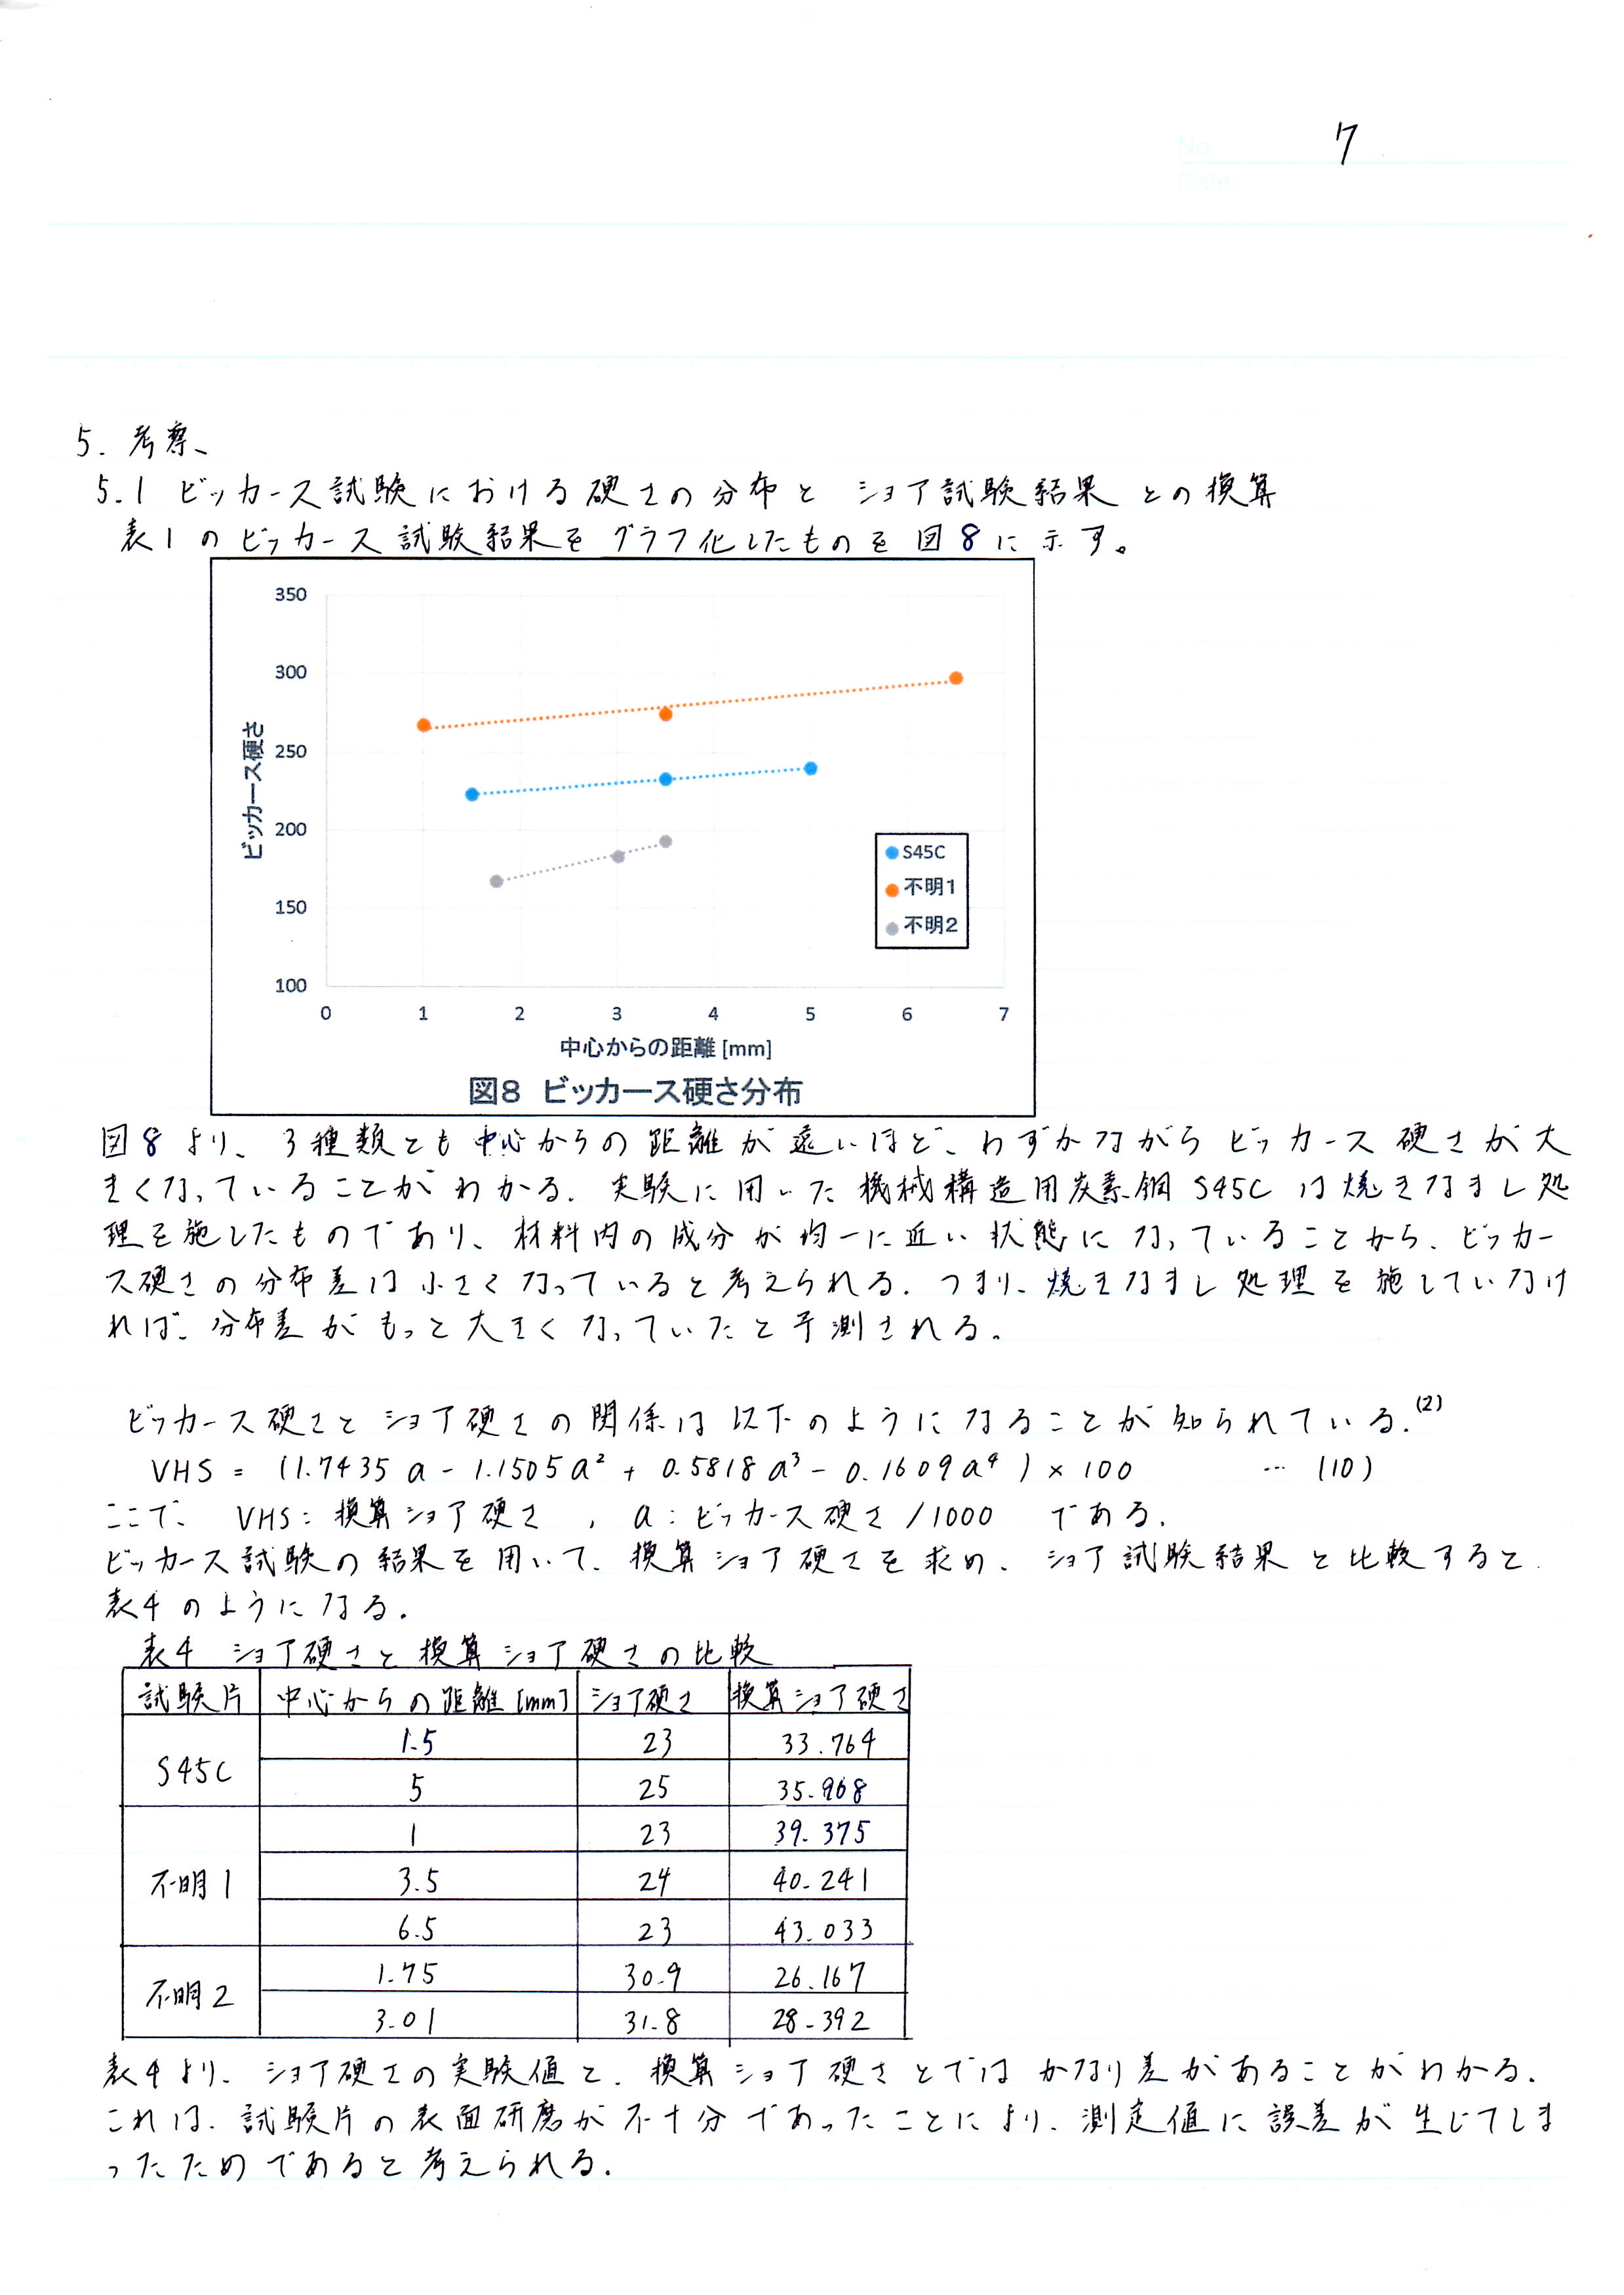 No. 7
Date
5. 考察、
5.1 ビッカース試験における硬さの分布と ショア試験結果 との換算
表1のビッカース試験結果をグラフ化したものを図8に示す。
350
300
250
200
150
100
ビッカース硬さ
S45C
不明1
不明2
0 1 2 3 4 5 6 7
中心からの距離 [mm]
図8 ビッカース硬さ分布
図8より、3種類とも中心からの距離が遠いほど、わずかながらビッカース硬さが大
きくなっていることがわかる. 実験に用いた機械構造用炭素鋼 S45C は焼きなまし処
理を施したものであり、材料内の成分が均一に近い状態になっていることから、ビッカー
ス硬さの分布差は小さくなっていると考えられる. つまり、焼きなまし処理を施していなけ
れば、分布差がもっと大きくなっていたと予測される。
ビッカース硬さとショア硬さの関係は以下のようになることが知られている.(2)
VHS = (1.7435 a - 1.1505 a² + 0.5818 a³ - 0.1609 a⁴) × 100 … (10)
ここで、 VHS: 換算ショア硬さ , a: ビッカース硬さ /1000 である.
ビッカース試験の結果を用いて、換算ショア硬さを求め、ショア試験結果と比較すると、
表4のようになる.
表4 ショア硬さと換算ショア硬さの比較
試験片 中心からの距離 [mm] ショア硬さ 換算ショア硬さ
S45C 1.5 23 33.764
5 25 35.968
不明1 1 23 39.375
3.5 24 40.241
6.5 23 43.033
不明2 1.75 30.9 26.167
3.01 31.8 28.392
表4より、ショア硬さの実験値と、換算ショア硬さとではかなり差があることがわかる.
これは、試験片の表面研磨が不十分であったことにより、測定値に誤差が生じてしま
ったためであると考えられる.